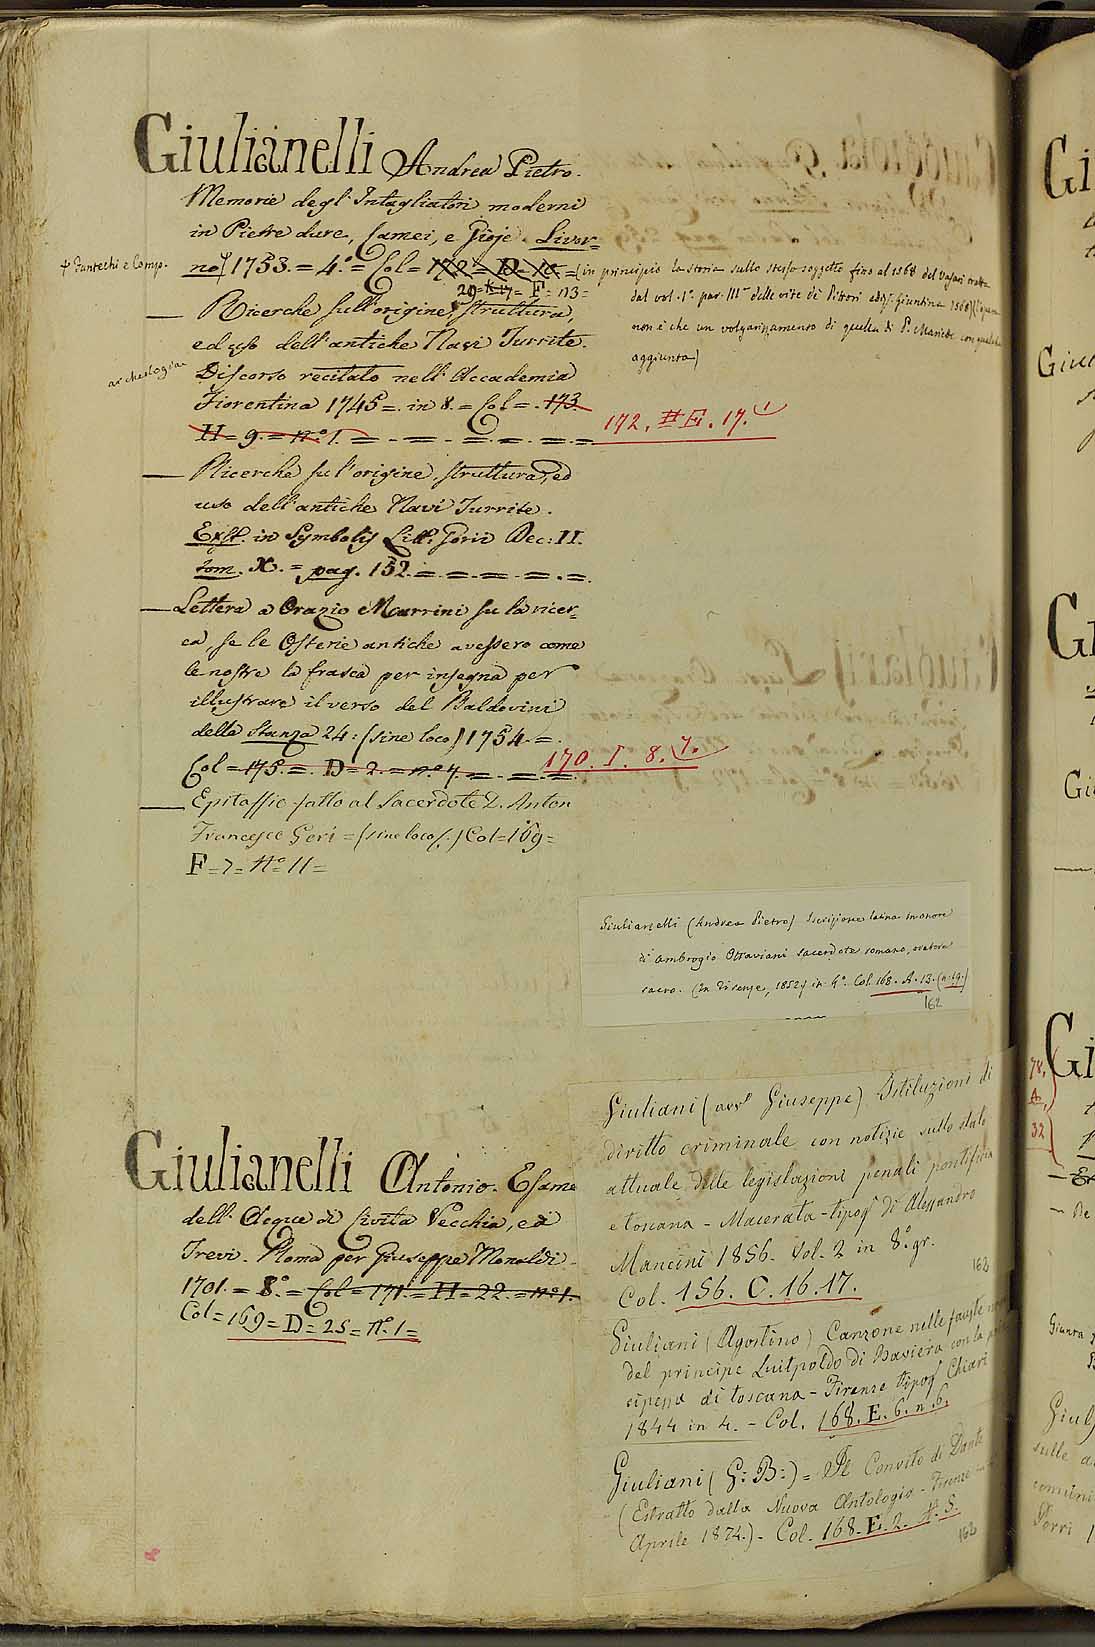 Giulianelli Andrea Pietro.
Memorie degl'Intagliatori moderni
in Pietre dure, Camei, e Gioje. Livor-
no 1753. = 4.º = Col = 172 = D = 10. =
29 = F = n3 =
Fantechi e Comp.
(in principio la storia sullo stesso soggetto fino al 1568 del Vasari tratta
dal vol. 1º. par. IIIª delle vite di Pittori ediz. Giuntina 1568)
non è che un volgarizzamento di quella di P. Mariette con qualche
aggiunta)
— Ricerche sull'origine, struttura,
ed uso dell'antiche Navi Turrite.
archeologia
Discorso recitato nell'Accademia
Fiorentina 1745 =. in 8. = Col =. 173
H = 9. = nº 1. =
172. E. 17. 1
— Ricerche su l'origine, struttura, ed
uso dell'antiche Navi Turrite.
Exst. in Symbolis Litt. Gorii Dec: II.
tom. X. = pag. 152. =
— Lettera a Orazio Marrini su la ricer-
ca, se le Osterie antiche avessero come
le nostre la frasca per insegna per
illustrare il verso del Baldovini
della Stanza 24: (sine loco) 1754. =.
Col = 175. =. D = 2. = nº 4. =
170. I. 8. 7.
— Epitaffio fatto al Sacerdote D. Anton
Francesco Geri = (sine loco) Col = 169 =
F = 7 = Nº 11 =
Giulianelli (Andrea Pietro) Iscrizione latina in onore
di Ambrogio Ottaviani sacerdote romano, oratore
sacro. (In Firenze, 1852) in 4º. Col. 168. A. 13. (n. 19.)
162
Giulianelli Antonio. Esame
dell'Acque di Civita Vecchia, e di
Trevi. Roma per Giuseppe Monaldi
1701. = 8.º = Col = 171. = H = 22. = nº 1.
Col = 169 = D = 25 = Nº. 1 =
Giuliani (avvº Giuseppe) Istituzioni di
diritto criminale con notizie sullo stato
attuale delle legislazioni penali pontificia
e toscana - Macerata - tipogª di Alessandro
Mancini 1856. Vol. 2 in 8º. gr.
Col. 156. C. 16. 17.
162
Giuliani (Agostino) Canzone nelle fauste
del principe Luitpoldo di Baviera con la
cipessa di toscana - Firenze tipogª Chiari
1844 in 4. - Col. 168. E. 6. n. 6.
Giuliani (G: B:) = Il Convito di Dante
(Estratto dalla Nuova Antologia - Firenze
Aprile 1874.) - Col. 168. E. 2. N. 5.
162